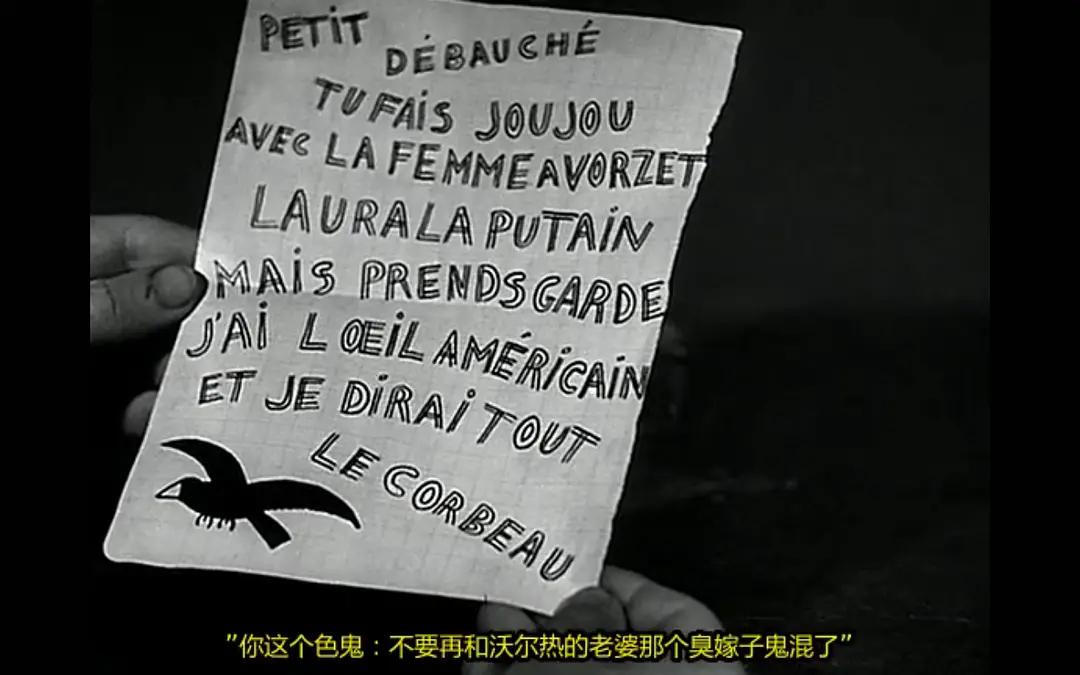 PETIT
DÉBAUCHÉ
TU FAIS JOUJOU
AVEC LA FEMME A VORZET
LAURA LA PUTAIN
MAIS PRENDS GARDE
J'AI L ŒIL AMÉRICAIN
ET JE DIRAI TOUT
LE CORBEAU
”你这个色鬼：不要再和沃尔热的老婆那个臭嫁子鬼混了”